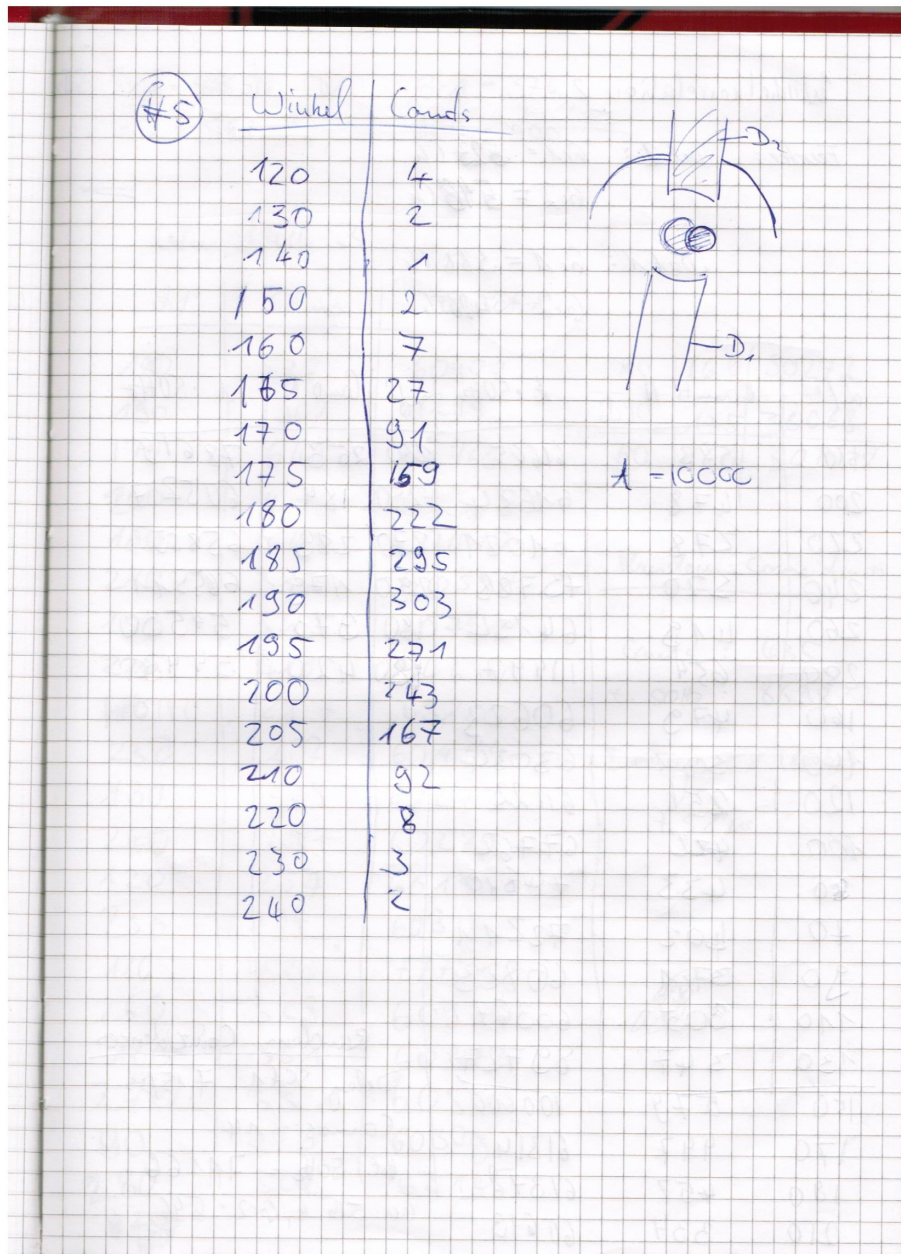 #5 Winkel Counts
120 4
130 2
140 1
150 2
160 7
165 27
170 91
175 159
180 222
185 295
190 303
195 271
200 243
205 167
210 92
220 8
230 3
240 2
D2
D1